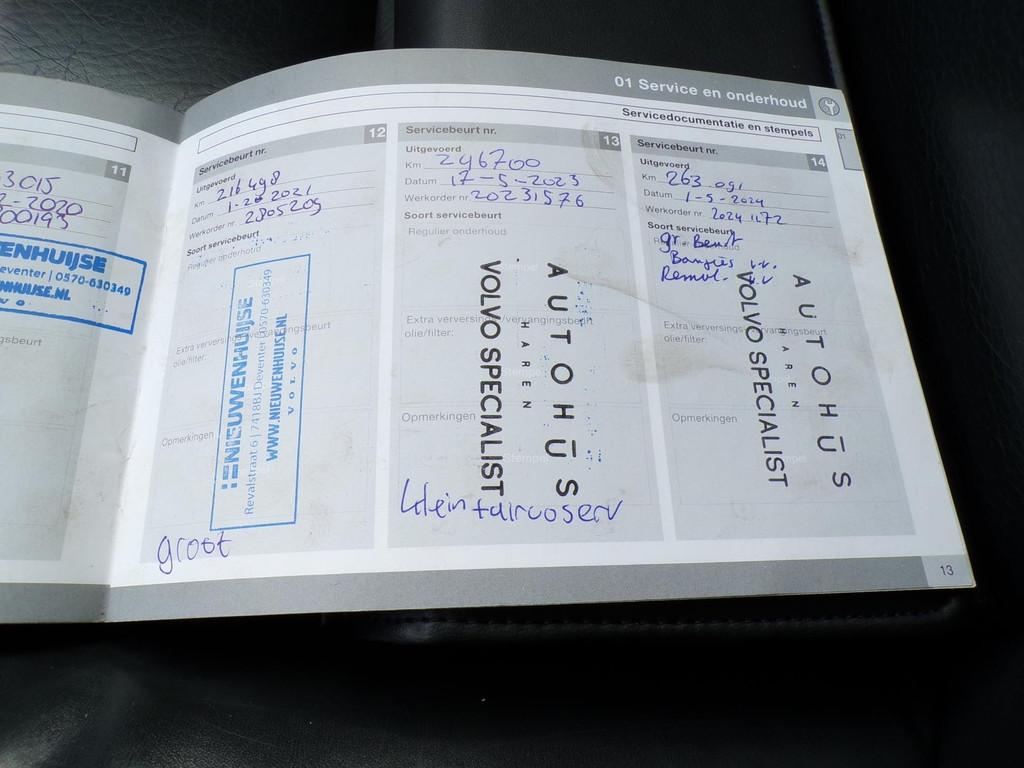 01 Service en onderhoud
Servicedocumentatie en stempels
01
11
3015
-2020
00193
ENHUIJSE
eventer | 0570-630349
NHUIJSE.NL
V O
sbeurt
Servicebeurt nr. 12
Uitgevoerd
Km 216498
Datum 1-20 2021
Werkorder nr. 2805209
Soort servicebeurt
Regulier onderhoud
Extra verversings-/vervangingsbeurt
olie/filter:
Opmerkingen
NIEUWENHUIJSE
Revalstraat 6 | 7418BJ Deventer | 0570-630349
WWW.NIEUWENHUIJSE.NL
VOLVO
groot
Servicebeurt nr. 13
Uitgevoerd
Km 246700
Datum 17-5-2023
Werkorder nr. 20231576
Soort servicebeurt
Regulier onderhoud
Stempel
Extra verversings-/vervangingsbeurt
olie/filter:
Opmerkingen
Stempel
AUTOHŪS
HAREN
VOLVO SPECIALIST
klein + airco serv
Servicebeurt nr. 14
Uitgevoerd
Km 263 091
Datum 1-5-2024
Werkorder nr. 2024 1172
Soort servicebeurt
gr. Beurt
v.v.
Remvl. v.v
Extra verversings-/vervangingsbeurt
olie/filter:
Opmerkingen
Stempel
AUTOHŪS
HAREN
VOLVO SPECIALIST
13